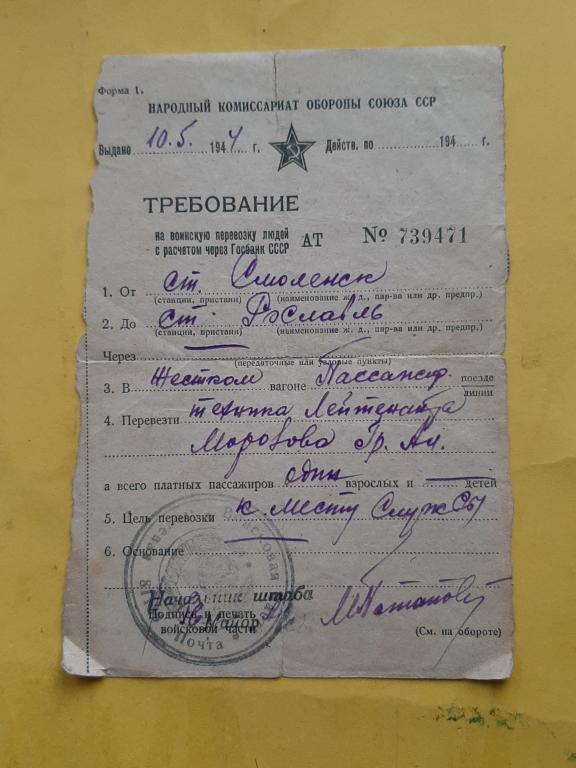 Форма 1.
НАРОДНЫЙ КОМИССАРИАТ ОБОРОНЫ СОЮЗА ССР
Выдано 10.5. 1944 г. Действ. по 194 г.
ТРЕБОВАНИЕ
на воинскую перевозку людей
с расчетом через Госбанк СССР АТ № 739471
1. От ст. Смоленск
(станции, пристани) (наименование ж. д., пар-ва или др. предпр.)
2. До ст. Рославль
(станции, пристани) (наименование ж. д., пар-ва или др. предпр.)
Через
(передаточные или узловые пункты)
3. В жестком вагоне Пассажир. поезде
линии
4. Перевезти техника Лейтенанта
Морозова Гр. Ал.
а всего платных пассажиров один взрослых и детей
5. Цель перевозки к месту Службы
6. Основание
Начальник штаба
Подпись и печать
Майор
войсковой части
Почта
(См. на обороте)